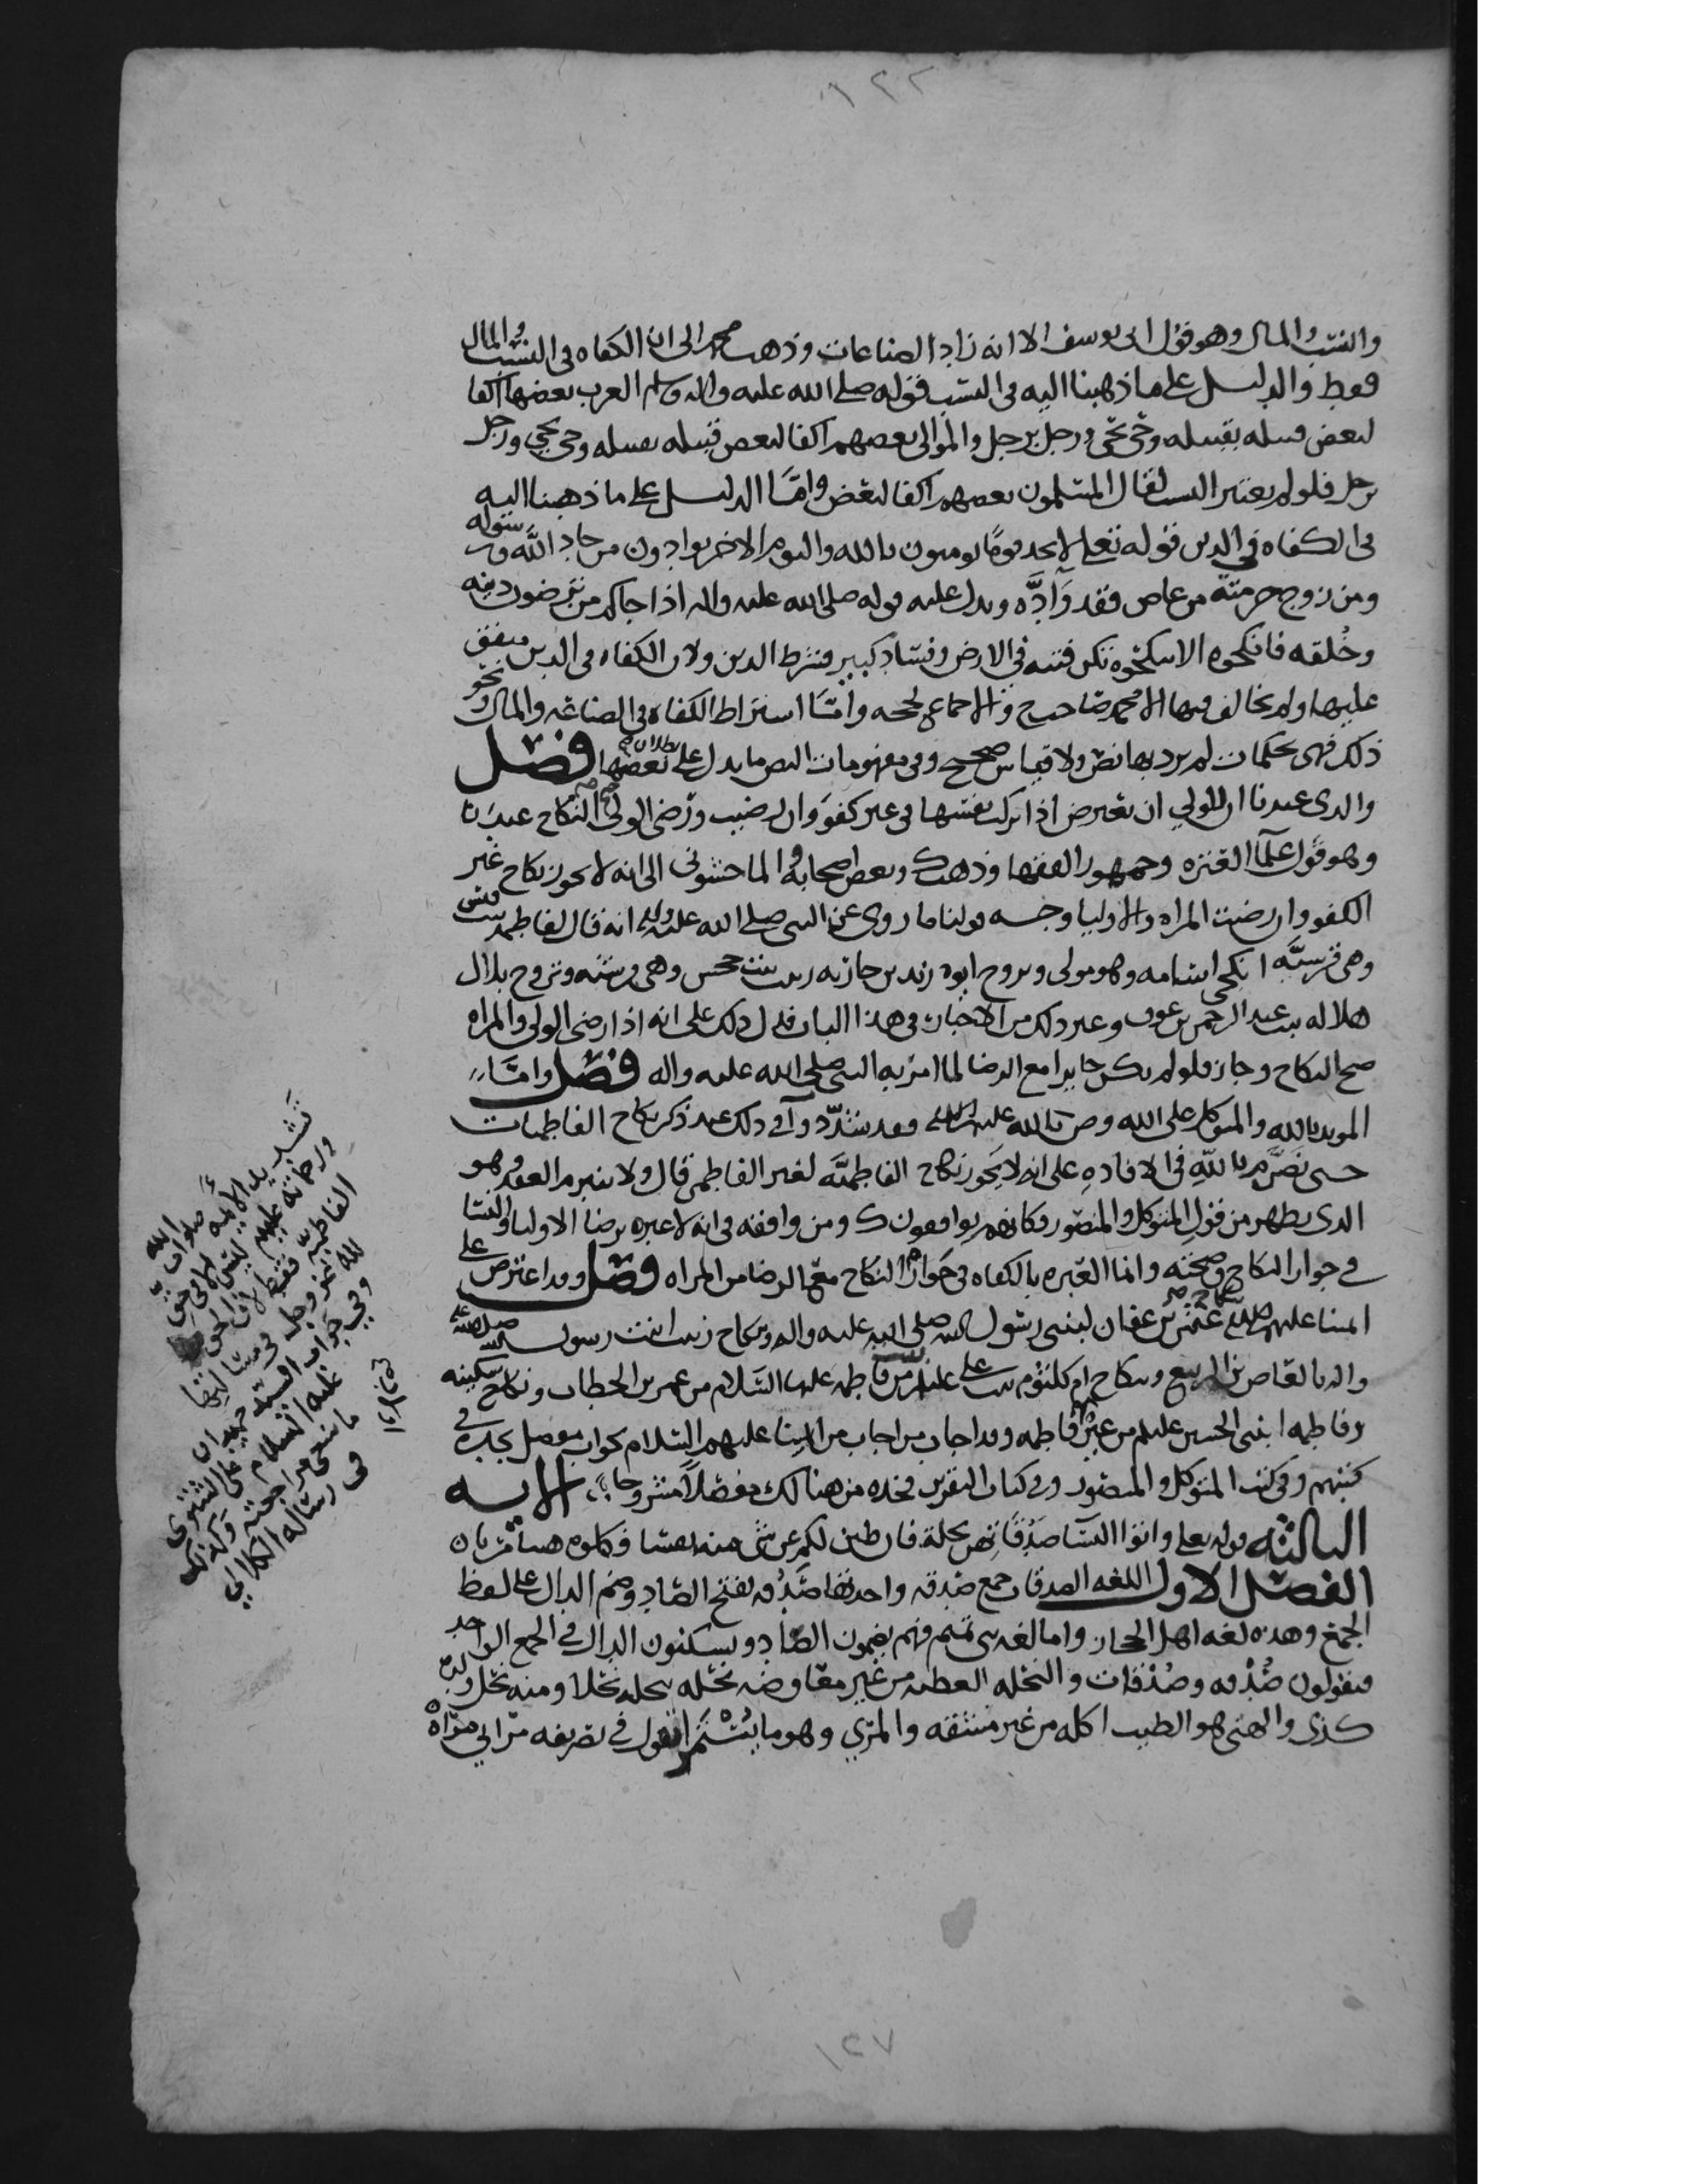 ١٢٢
والنسب والمال وهو قول ابي يوسف الا انه زاد الصناعات وذهب محمد الى ان الكفاه في النسب والمال
فقط والدليل على ما ذهبنا اليه في النسب قوله صلى الله عليه واله وسلم العرب بعضها اكفا
لبعض قبيله بقبيله وحي بحي ورجل برجل والموالي بعضهم اكفا لبعض قبيله بقبيله وحي بحي ورجل
برجل فلو لم يعتبر النسب لقال المسلمون بعضهم اكفا لبعض واما الدليل على ما ذهبنا اليه
في الكفاه في الدين قوله تعلى لا تجد قوما يومنون بالله واليوم الاخر يوادون من حاد الله ورسوله
ومن زوج حرمته من عاص فقد وادّه ويدل عليه قوله صلى الله عليه واله اذا جاكم من ترضون دينه
وخُلقه فانكحوه الا تنكحوه تكن فتنه في الارض وفساد كبير فشرط الدين ولان الكفاه في الدين متفق
عليها ولم يخالف فيها الا محمد صاحب ح والاجماع يحجه واما اشتراط الكفاه في الصناعه والمال ونحو
ذلك فهي تحكمات لم يرد بها نص ولا قياس صحيح وفي مفهومات النص ما يدل على بطلان بعضها فصل
والذي عندنا ان للولي ان يعترض اذا تركت نفسها في غير كفو وان رضيت ورضي الولي صح النكاح عندنا
وهو قول علما العتره وجمهور الفقها وذهب ك وبعض اصحابه والماجشوني الى انه لا يجوز نكاح غير
الكفو وان رضيت المراه والاوليا وجه قولنا ما روي عن النبي صلى الله عليه واله انه قال لفاطمه بنت قيس
وهي قرشيّه انكحي اسامه وهو مولى وتزوج ابوه زيد بن حارثه زينب بنت جحش وهي قرشيه وتزوج بلال
هلاله بنت عبد الرحمن بن عوف وغير ذلك من الاخبار في هذا الباب فدل ذلك على انه اذا رضي الولي والمراه
صح النكاح وجاز فلو لم يكن جايزا مع الرضا لما امر به النبي صلى الله عليه واله فصل واما
المويد بالله والمتوكل على الله وص بالله عليهم السلام فقد شدّدوا في ذلك عند ذكر نكاح الفاطميات
حتى نصّ م بالله في الافاده على انه لا يجوز نكاح الفاطميّه لغير الفاطمي قال ولا ينبرم العقد وهو
الذي يظهر من قول المتوكل والمنصور وكانهم يوافقون ك ومن وافقه في انه لا عبره برضا الاوليا والنسا
في جواز النكاح وصحته وانما العبره بالكفاه في جواز النكاح مع الرضا من المراه فصل وقد اعترض على
ايمتنا عليهم السلام بنكاح عثمن بن عفان لبنتي رسول الله صلى الله عليه واله ونكاح زينب ابنت رسول الله صلى الله عليه
واله بالعاص بن الربيع ونكاح ام كلثوم بنت علي عليلم من فاطمه عليها السلام من عمر بن الخطاب ونكاح سكينه
وفاطمه ابنتي الحسين عليلم من غير فاطمه وقد اجاب من اجاب من ايمتنا عليهم السلام بجواب مفصل تجده في
كتبهم وفي كتب المتوكل والمنصور وفي كتاب التقرير فخده من هنالك مفصلاً مشروحا الايه
الثالثه قوله تعلى واتوا النسا صَدُقاتِهن نحلة فان طبن لكم عن شي منه نفسا فكلوه هنيا مريا ن
الفصل الاول اللغه الصدقات جمع صدقه واحدتها صَدُقه بفتح الصاد وضم الدال على لفظ
الجمع وهذه لغه اهل الحجاز واما لغه بني تميم فهم يضمون الصاد ويسكنون الدال في الجمع والواحد
فيقولون صُدْقه وصُدْقات والنحله العطيه من غير معاوضه نحله ينحله نحلا ومنه نحل ولده
كذى والهني هو الطيب اكله من غير مشقه والمري وهو ما يُسْتَمْرا تقول في تصريفه مراني مراه
تشديد الايمه صلوات الله
ورحمته عليهم ليس الا في حق
الفاطميه فقط لان الحق
لله عز وجل في مسا لرضا
وفي جواب السيد حميدان
عليه السلام على الشتوي
ما ينبغي مراجعته وكذلك
في رساله الكلالي
١٢٧